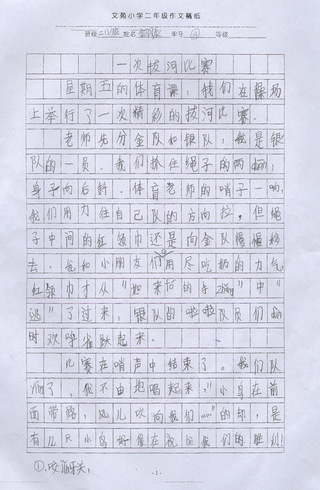 文苑小学二年级作文稿纸
班级 姓名 学号 等级
一次拔河比赛
星期五的体育课,我们在操场
上举行了一次精彩的拔河比赛.
老师先分金队和银队,我是银
队的一员.我们抓住绳子的两duān,
身子向后斜.体育老师的哨子一响,
我们用力往自己队的方向拉.但绳
子中间的红领巾还是向金队慢慢移
去.我和小朋友们用尽吃奶的力气,
红领巾才从"
"了过来,银队的啦啦队员们
时欢呼雀跃起来.
比赛在哨声中结束了。我们队
了,我不由地唱起来:"小鸟在前
面带路,风儿吹向我们……"的却,是
有几只小鸟好像在祝贺我们的胜利!
①咬牙关;
-1-